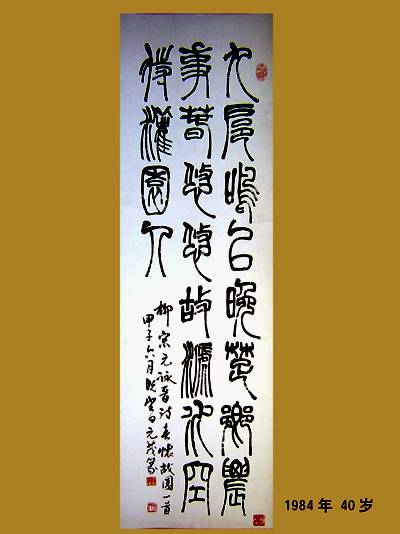 九扈鳴已晚楚鄉農
事春悠悠故池水空
待灌園人
柳宗元詠春诗春懷故園一首
甲子六月既望日元茂篆
1984年 40岁